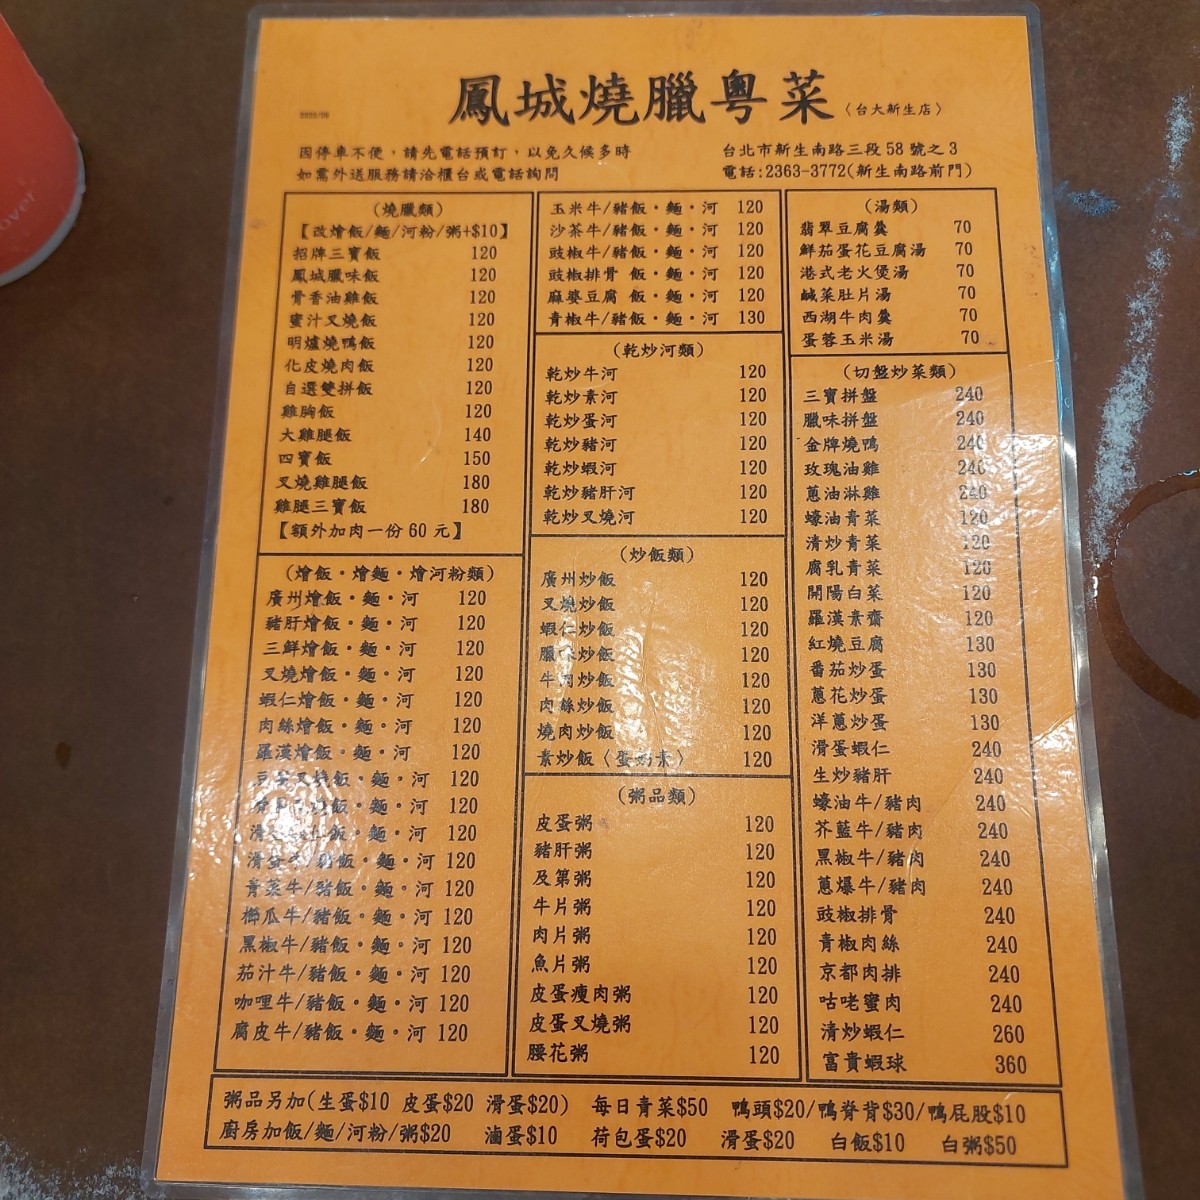 鳳城燒臘粵菜〈台大新生店〉
因停車不便，請先電話預訂，以免久候多時
如需外送服務請洽櫃台或電話詢問
台北市新生南路三段58號之3
電話:2363-3772(新生南路前門)
(燒臘類)
【改燴飯/麵/河粉/粥+$10】
招牌三寶飯 120
鳳城臘味飯 120
骨香油雞飯 120
蜜汁叉燒飯 120
明爐燒鴨飯 120
化皮燒肉飯 120
自選雙拼飯 120
雞胸飯 120
大雞腿飯 140
四寶飯 150
叉燒雞腿飯 180
雞腿三寶飯 180
【額外加肉一份60元】
(燴飯・燴麵・燴河粉類)
廣州燴飯・麵・河 120
豬肝燴飯・麵・河 120
三鮮燴飯・麵・河 120
叉燒燴飯・麵・河 120
蝦仁燴飯・麵・河 120
肉絲燴飯・麵・河 120
羅漢燴飯・麵・河 120
叉燒飯・麵・河 120
飯・麵・河 120
飯・麵・河 120
滑蛋牛/豬飯・麵・河 120
青菜牛/豬飯・麵・河 120
櫛瓜牛/豬飯・麵・河 120
黑椒牛/豬飯・麵・河 120
茄汁牛/豬飯・麵・河 120
咖哩牛/豬飯・麵・河 120
腐皮牛/豬飯・麵・河 120
玉米牛/豬飯・麵・河 120
沙茶牛/豬飯・麵・河 120
豉椒牛/豬飯・麵・河 120
豉椒排骨 飯・麵・河 120
麻婆豆腐 飯・麵・河 120
青椒牛/豬飯・麵・河 130
(乾炒河類)
乾炒牛河 120
乾炒素河 120
乾炒蛋河 120
乾炒豬河 120
乾炒蝦河 120
乾炒豬肝河 120
乾炒叉燒河 120
(炒飯類)
廣州炒飯 120
叉燒炒飯 120
蝦仁炒飯 120
臘味炒飯 120
牛肉炒飯 120
肉絲炒飯 120
燒肉炒飯 120
素炒飯〈蛋奶素〉 120
(粥品類)
皮蛋粥 120
豬肝粥 120
及第粥 120
牛片粥 120
肉片粥 120
魚片粥 120
皮蛋瘦肉粥 120
皮蛋叉燒粥 120
腰花粥 120
(湯類)
翡翠豆腐羹 70
鮮茄蛋花豆腐湯 70
港式老火煲湯 70
鹹菜肚片湯 70
西湖牛肉羹 70
蛋蓉玉米湯 70
(切盤炒菜類)
三寶拼盤 240
臘味拼盤 240
金牌燒鴨 240
玫瑰油雞 240
蔥油淋雞 240
蠔油青菜 120
清炒青菜 120
腐乳青菜 120
開陽白菜 120
羅漢素齋 120
紅燒豆腐 130
番茄炒蛋 130
蔥花炒蛋 130
洋蔥炒蛋 130
滑蛋蝦仁 240
生炒豬肝 240
蠔油牛/豬肉 240
芥藍牛/豬肉 240
黑椒牛/豬肉 240
蔥爆牛/豬肉 240
豉椒排骨 240
青椒肉絲 240
京都肉排 240
咕咾蜜肉 240
清炒蝦仁 260
富貴蝦球 360
粥品另加(生蛋$10 皮蛋$20 滑蛋$20) 每日青菜$50 鴨頭$20/鴨脊背$30/鴨屁股$10
廚房加飯/麵/河粉/粥$20 滷蛋$10 荷包蛋$20 滑蛋$20 白飯$10 白粥$50
over